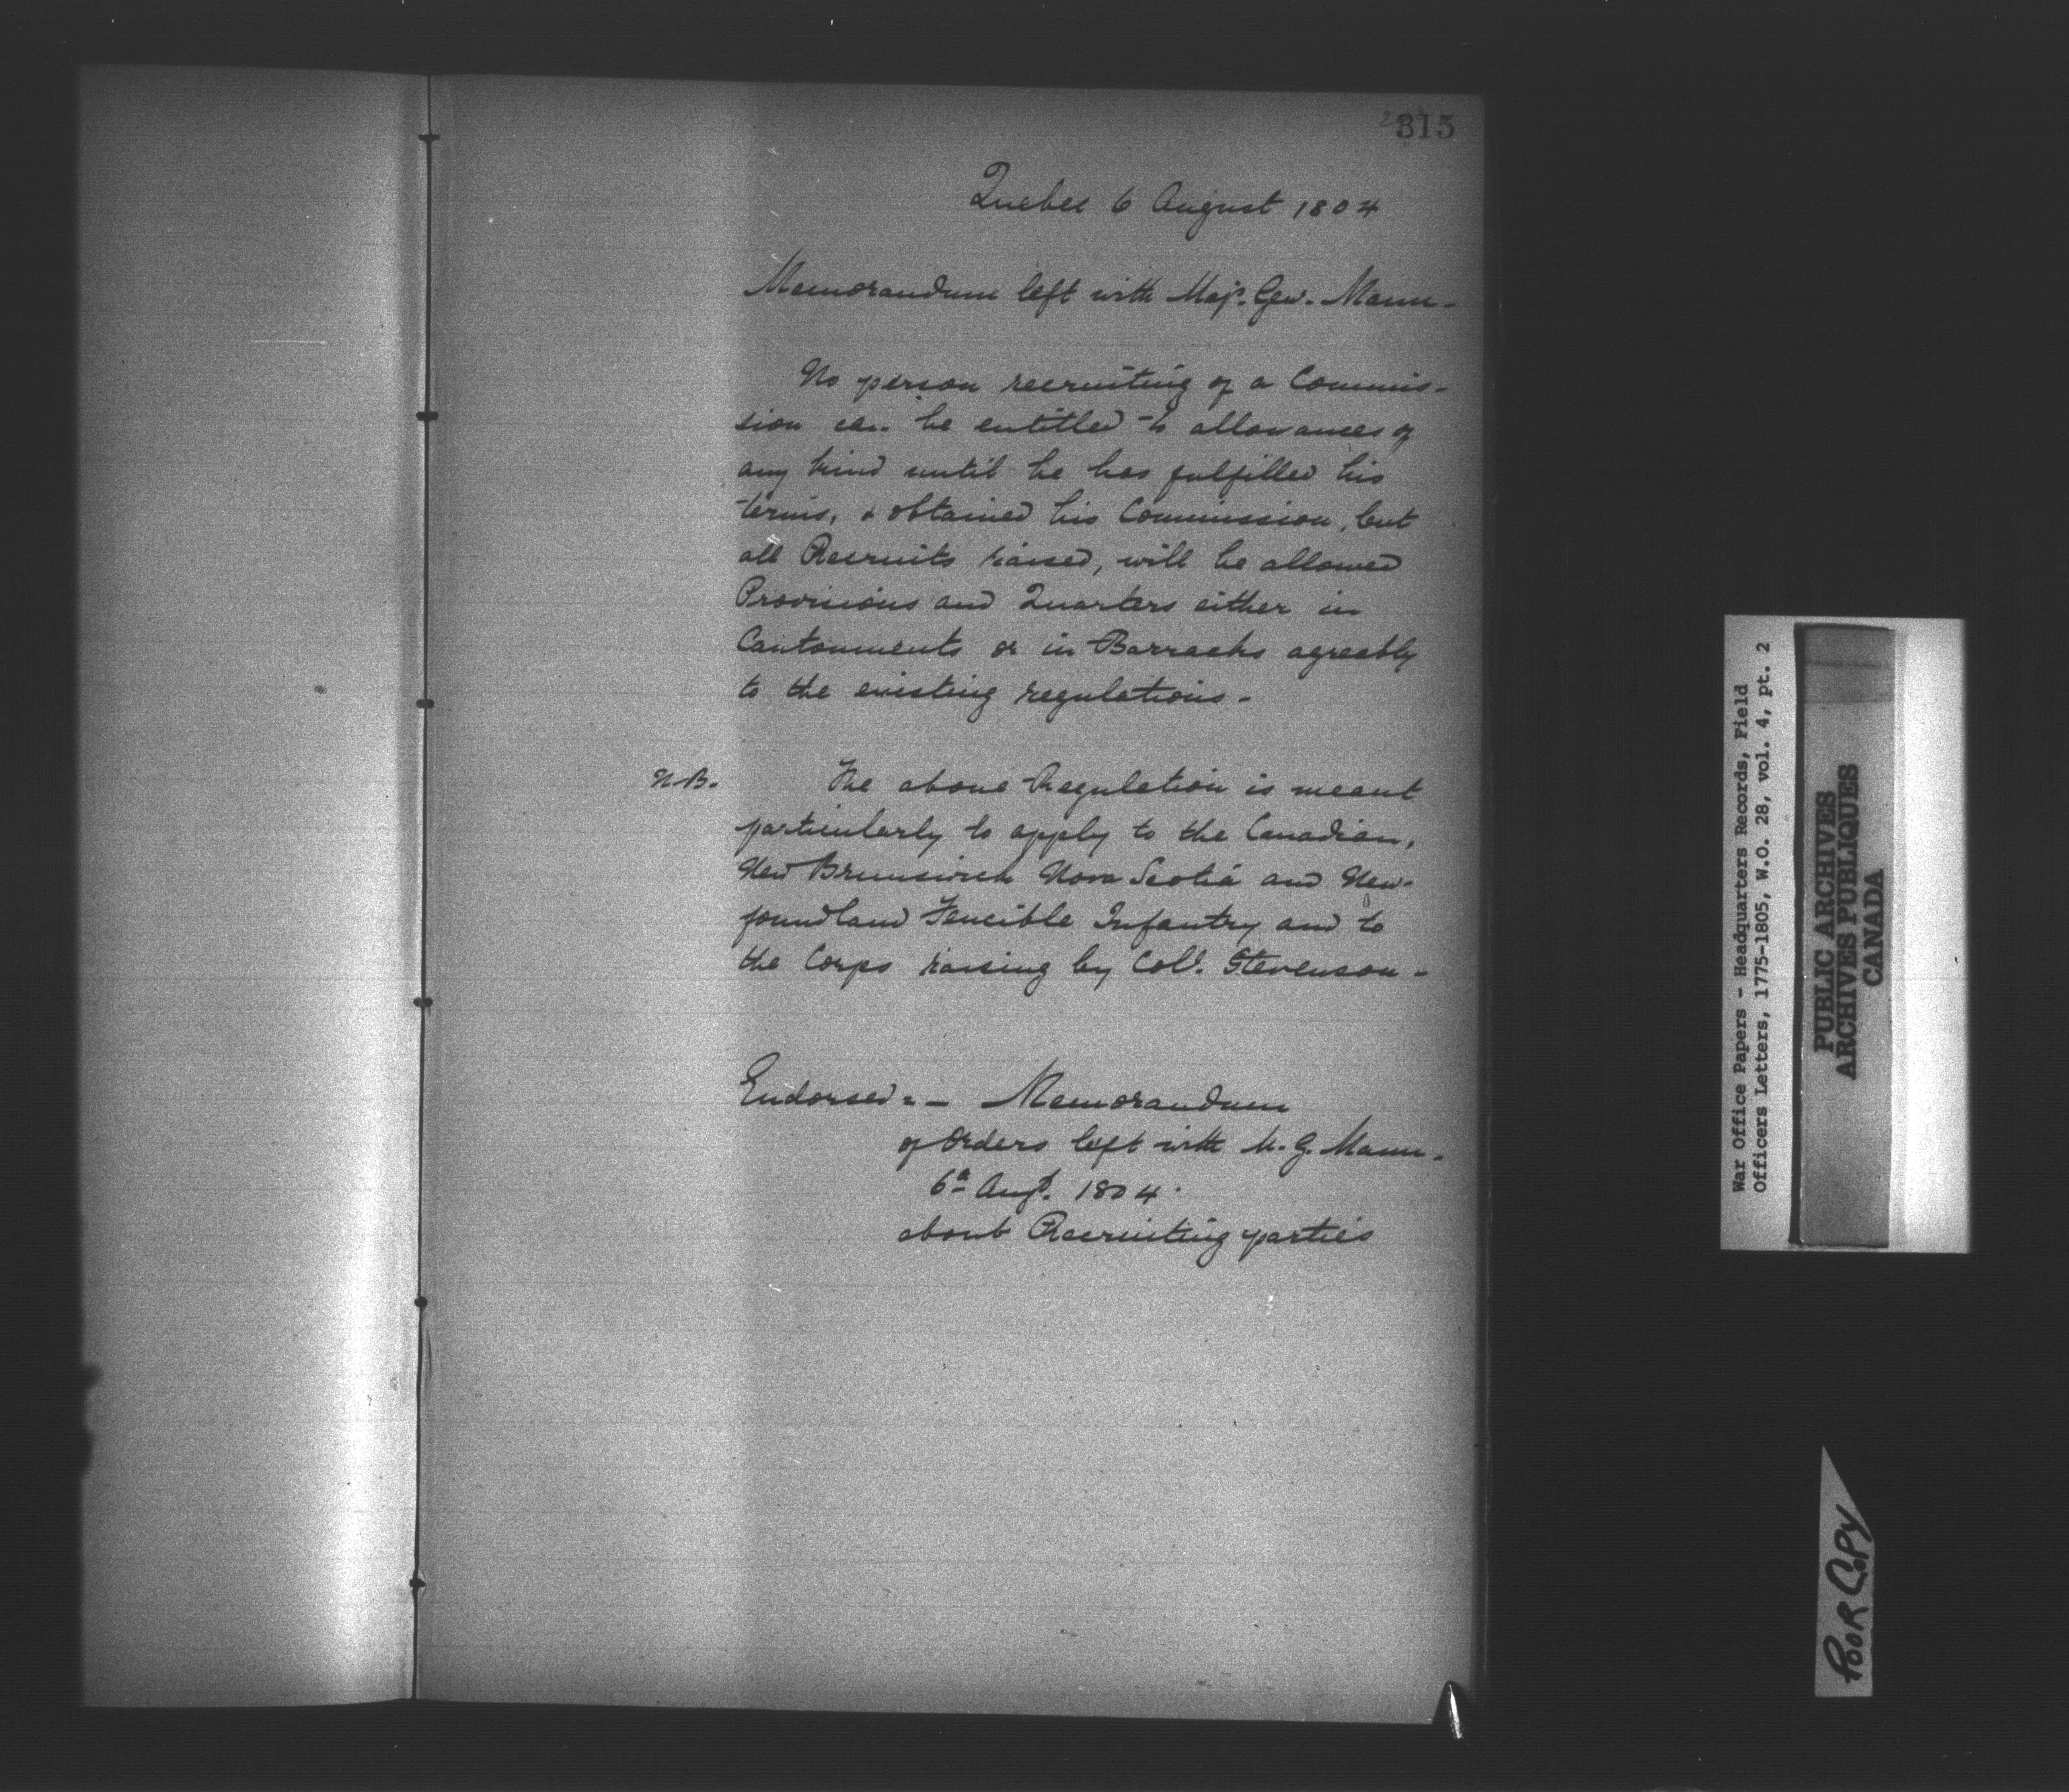 315
Quebec 6 August 1804
Memorandum left with Majr. Gen. Mann -
No person recruiting of a Commis-
sion can be entitled to allowances of
any kind until he has fulfilled his
terms, & obtained his Commission, but
all Recruits raised, will be allowed
Provisions and Quarters either in
Cantonments or in Barracks agreably
to the existing regulations -
N.B. The above Regulation is meant
particularly to apply to the Canadian,
New Brunswick Nova Scotia and New-
foundland Fencible Infantry and to
the Corps raising by Coll. Stevenson -
Endorsed: - Memorandum
of Orders left with M. G. Mann.
6th Augt. 1804.
about Recruiting parties
War Office Papers - Headquarters Records, Field
Officers Letters, 1775-1805, W.O. 28, vol. 4, pt. 2
PUBLIC ARCHIVES
ARCHIVES PUBLIQUES
CANADA
POOR COPY